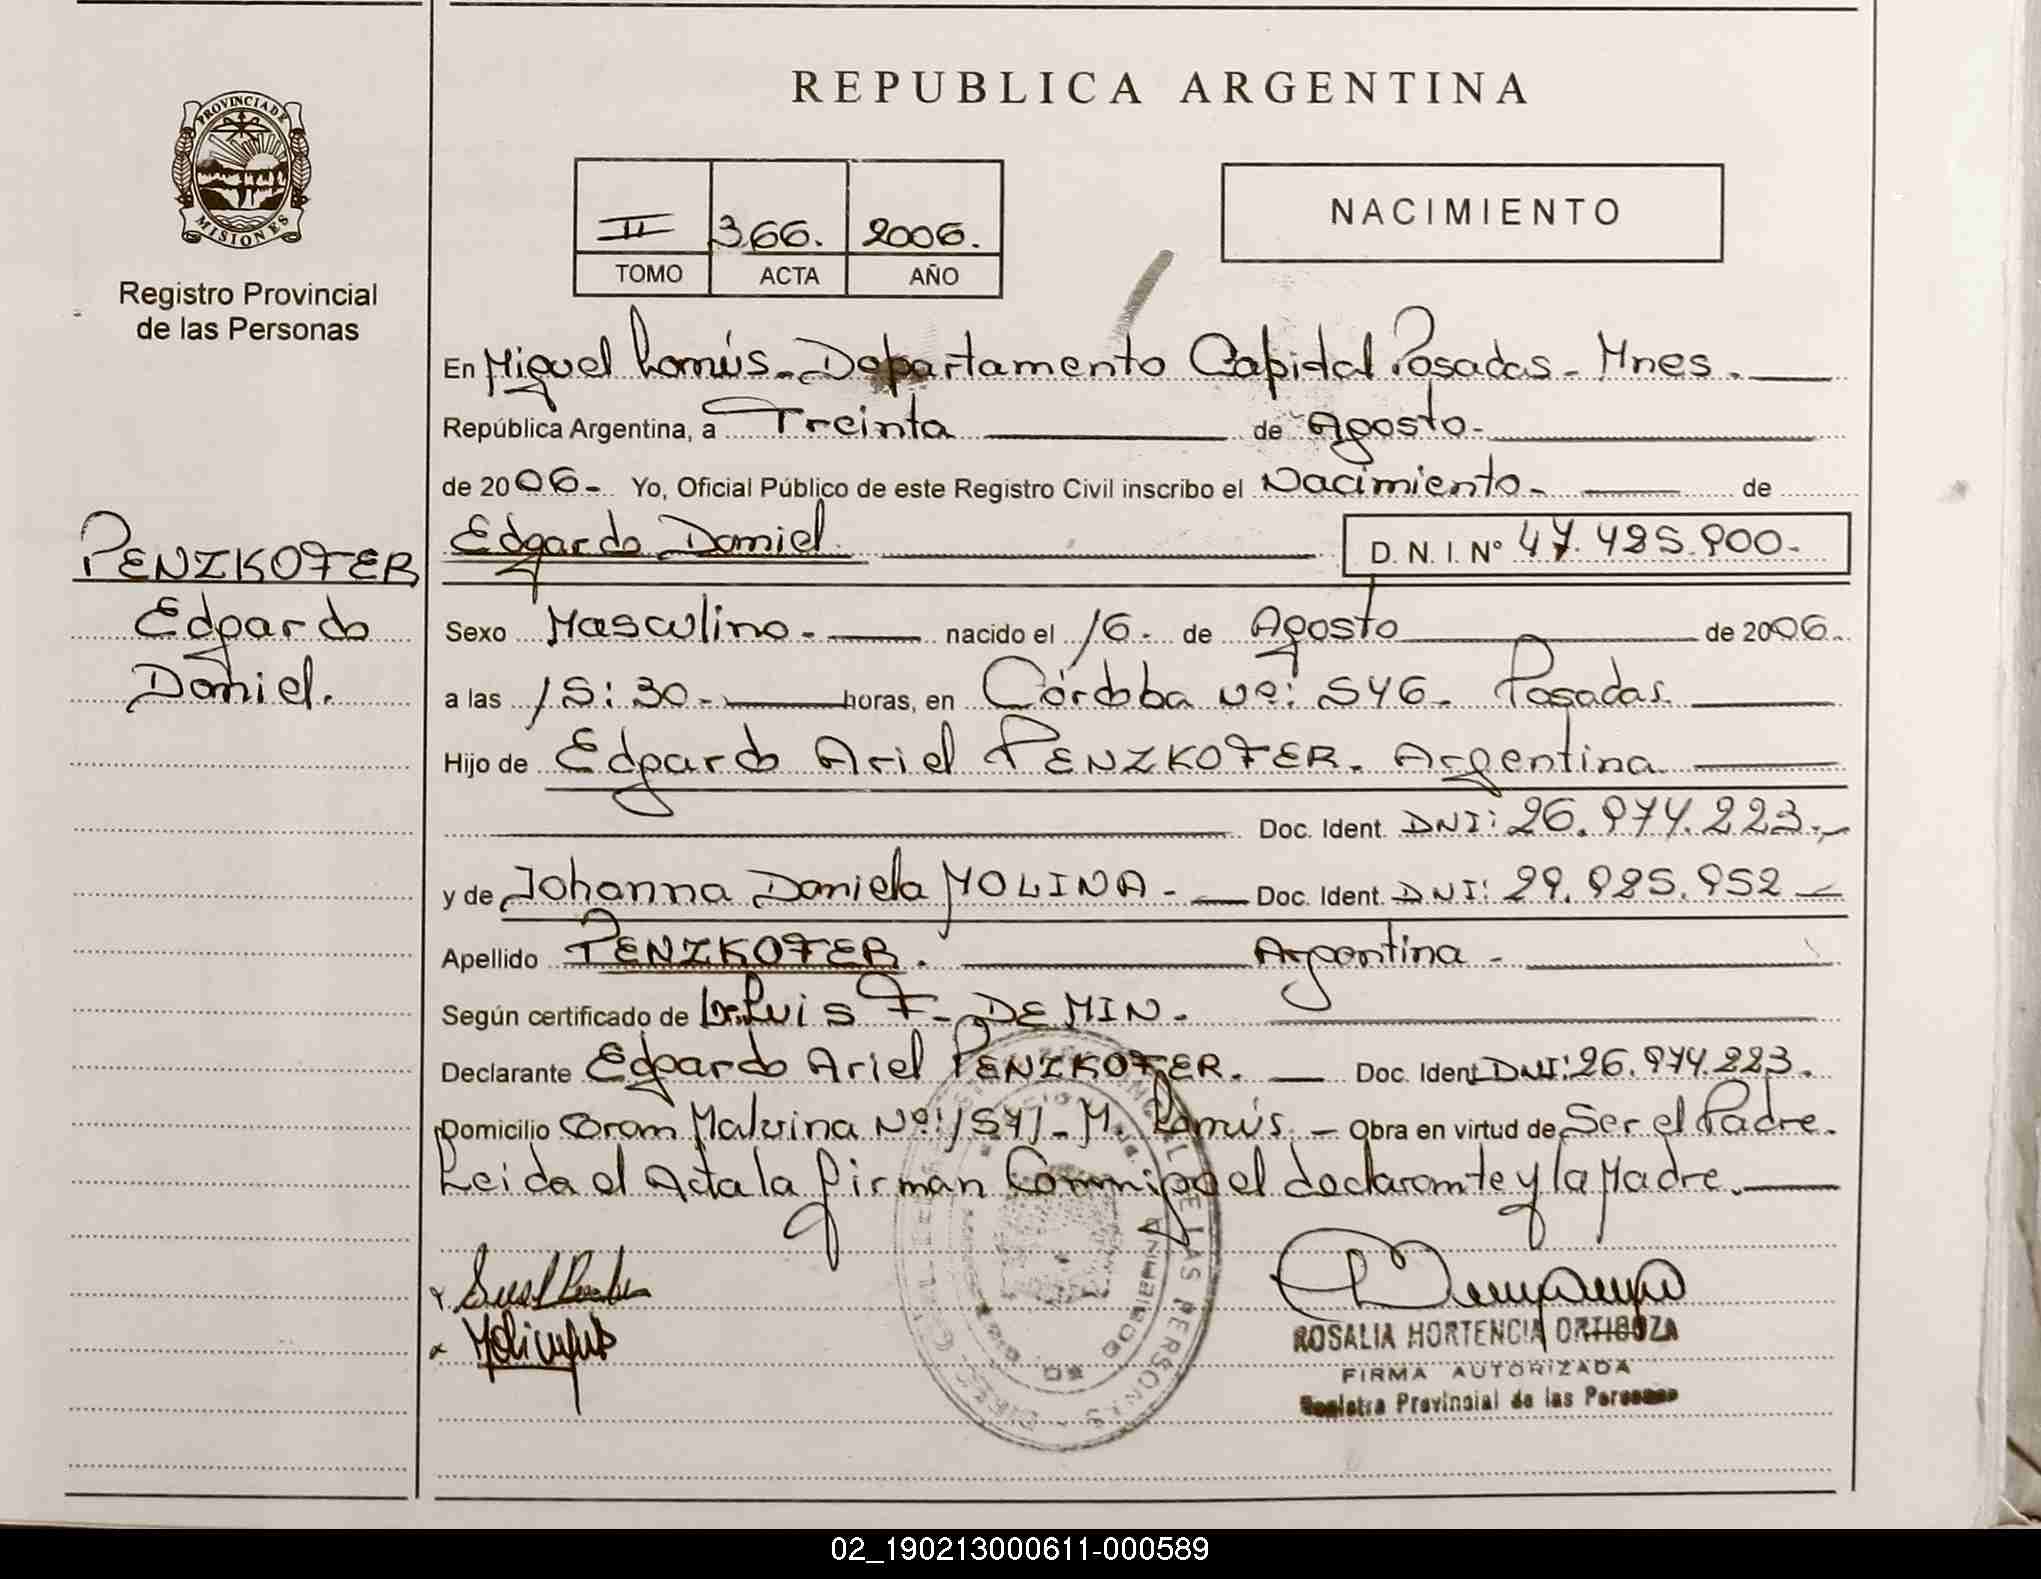 REPUBLICA ARGENTINA
PROVINCIA DE
MISIONES
Registro Provincial
de las Personas
II 366. 2006.
TOMO ACTA AÑO
NACIMIENTO
En Miguel Lanús - Departamento Capital Posadas - Mnes.
República Argentina, a Treinta de Agosto -
de 2006 - Yo, Oficial Público de este Registro Civil inscribo el Nacimiento - de
PENZKOFER
Edgardo
Daniel.
Edgardo Daniel D. N. I. N° 47.485.900 -
Sexo Masculino - nacido el 16 - de Agosto de 2006.
a las 15:30 - horas, en Córdoba Nº: 546 - Posadas.
Hijo de Edgardo Ariel PENZKOFER. Argentina
Doc. Ident. DNI: 26.974.223.-
y de Johanna Daniela MOLINA - Doc. Ident. DNI: 29.985.952
Apellido PENZKOFER. Argentina -
Según certificado de Dr. Luis F. DEMIN.
Declarante Edgardo Ariel PENZKOFER. Doc. Ident DNI: 26.974.223.
Domicilio Coram Malvina Nº: 1541 - M. Lanús. - Obra en virtud de Ser el Padre.
Leida el Acta la firman Conmigo el declarante y la Madre.
ROSALIA HORTENCIA ORTIGOZA
FIRMA AUTORIZADA
Registro Provincial de las Personas
02_190213000611-000589